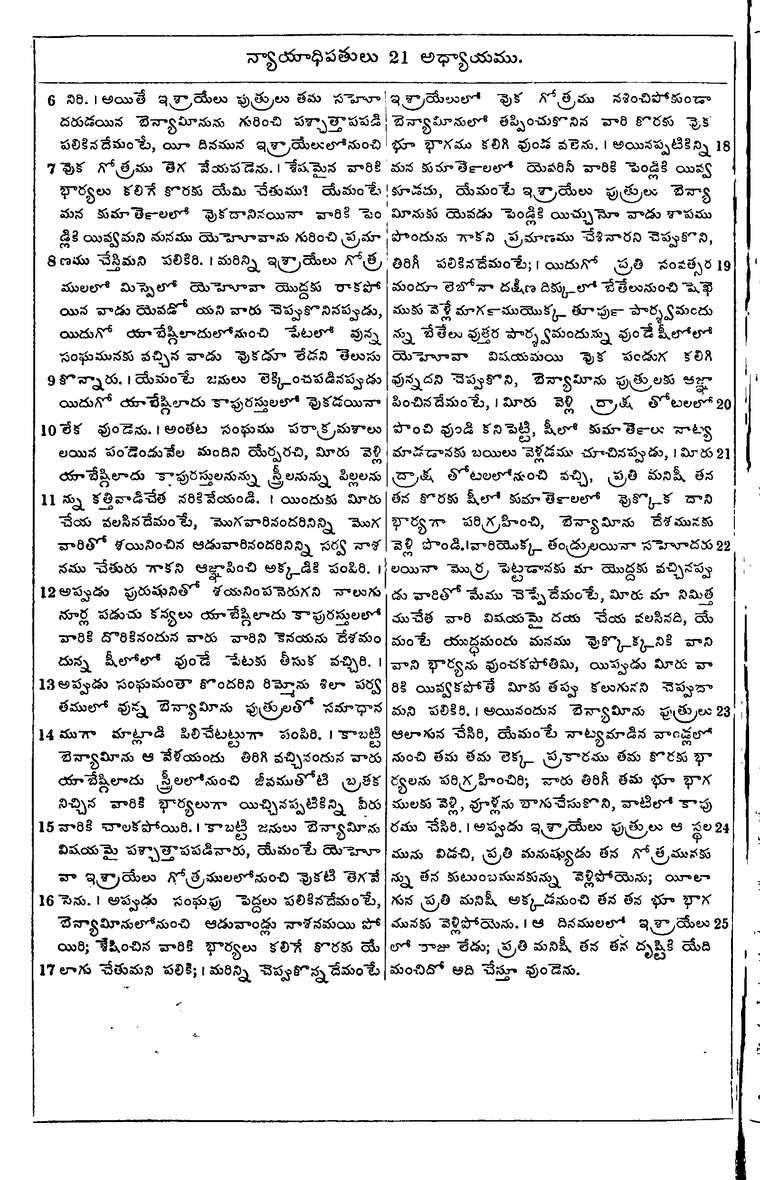 న్యాయాధిపతులు 21 అధ్యాయము.
6 నిరి. । అయితే ఇశ్రాయేలు పుత్రులు తమ సహో
దరుడయిన బెన్యామీనును గురించి పశ్చాత్తాపపడి
పలికినదేమంటే, యీ దినమున ఇశ్రాయేలులోనుంచి
7 వుక గోత్రము తెగ వేయపడెను. । శేషమైన వారికి
భార్యలు కలిగే కొరకు యేమి చేతుము? యేమంటే
మన కుమార్తెలలో వుకదానినయినా వారికి పెం
డ్లికి యివ్వమని మనము యెహోవాను గురించి ప్రమా
8 ణము చేస్తిమని పలికిరి. । మరిన్ని ఇశ్రాయేలు గోత్ర
ములలో మిస్పెలో యెహోవా యొద్దకు రాకపో
యిన వాడు యెవడో యని వారు చెప్పుకొనినప్పుడు,
యిదుగో యాబేష్గిలాదులోనుంచి పేటలో వున్న
సంఘమునకు వచ్చిన వాడు వుకడూ లేడని తెలుసు
9 కొన్నారు. । యేమంటే జనులు లెక్కించపడినప్పుడు
యిదుగో యాబేష్గిలాదు కాపురస్తులలో వుకడయినా
10 లేక వుండెను. । అంతట సంఘము పరాక్రమశాలు
లయిన పండ్రెండువేల మందిని యేర్పరచి, మీరు వెళ్లి
యాబేష్గిలాదు కాపురస్తులనున్ను స్త్రీలనున్ను పిల్లలను
11 న్ను కత్తివాడిచేత నరికివేయండి. । యిందుకు మీరు
చేయ వలసినదేమంటే, మొగవారినందరినిన్ని మొగ
వారితో శయినించిన ఆడువారినందరినిన్ని సర్వ నాశ
నము చేతురు గాకని ఆజ్ఞాపించి అక్కడికి పంపిరి. ।
12 అప్పుడు పురుషునితో శయనింపనెరుగని నాలుగు
నూర్ల పడుచు కన్యలు యాబేష్గిలాదు కాపురస్తులలో
వారికి దొరికినందున వారు వారిని కెనయను దేశమం
దున్న షీలోలో వుండే పేటకు తీసుక వచ్చిరి. ।
13 అప్పుడు సంఘమంతా కొందరిని రిమ్మోను శిలా పర్వ
తములో వున్న బెన్యామీను పుత్రులతో సమాధాన
14 ముగా మాట్లాడి పిలిచేటట్టుగా పంపిరి. । కాబట్టి
బెన్యామీను ఆ వేళయందు తిరిగి వచ్చినందున వారు
యాబేష్గిలాదు స్త్రీలలోనుంచి జీవముతోటి బ్రతక
నిచ్చిన వారికి భార్యలుగా యిచ్చినప్పటికిన్ని వీరు
15 వారికి చాలకపోయిరి. । కాబట్టి జనులు బెన్యామీను
విషయమై పశ్చాత్తాపపడినారు, యేమంటే యెహో
వా ఇశ్రాయేలు గోత్రములలోనుంచి వుకటి తెగవే
16 సెను. । అప్పుడు సంఘపు పెద్దలు పలికినదేమంటే,
బెన్యామీనులోనుంచి ఆడువాండ్లు నాశనమయి పో
యిరి; శేషించిన వారికి భార్యలు కలిగే కొరకు యే
17 లాగు చేతుమని పలికి; । మరిన్ని చెప్పుకొన్న దేమంటే
ఇశ్రాయేలులో వుక గోత్రము నశించిపోకుండా
బెన్యామీనులో తప్పించుకొనిన వారి కొరకు వుక
భూ భాగము కలిగి వుండ వలెను. । అయినప్పటికిన్ని 18
మన కుమార్తెలలో యెవరినీ వారికి పెండ్లికి యివ్వ
కూడదు, యేమంటే ఇశ్రాయేలు పుత్రులు బెన్యా
మీనుకు యెవడు పెండ్లికి యిచ్చునో వాడు శాపము
పొందును గాకని ప్రమాణము చేశినారని చెప్పుకొని,
తిరిగీ పలికినదేమంటే; । యిదుగో ప్రతి సంవత్సర 19
మందూ లెబోనా దక్షిణ దిక్కులో బేతేలునుంచి షెఖె
ముకు వెళ్లే మార్గముయొక్క తూర్పు పార్శ్వమందు
న్ను బేతేలు వుత్తర పార్శ్వమందున్ను వుండే షీలోలో
యెహోవా విషయమయి వుక పండుగ కలిగి
వున్నదని చెప్పుకొని, బెన్యామీను పుత్రులకు ఆజ్ఞా
పించినదేమంటే, । మీరు వెళ్లి ద్రాక్ష తోటలలో 20
పొంచి వుండి కనిపెట్టి, షీలో కుమార్తెలు నాట్య
మాడడానకు బయిలు వెళ్లడము చూచినప్పుడు, । మీరు 21
ద్రాక్ష తోటలలోనుంచి వచ్చి, ప్రతి మనిషీ తన
తన కొరకు షీలో కుమార్తెలలో వుక్కొక దాని
భార్యగా పరిగ్రహించి, బెన్యామీను దేశమునకు
వెళ్లి పొండి. । వారియొక్క తండ్రులయినా సహోదరు 22
లయినా మొర్ర పెట్టడానకు మా యొద్దకు వచ్చినప్పు
డు వారితో మేము చెప్పేదేమంటే, మీరు మా నిమిత్త
ముచేత వారి విషయమై దయ చేయ వలసినది, యే
మంటే యుద్ధమందు మనము వుక్కొక్కనికి వాని
వాని భార్యను వుంచకపోతిమి, యిప్పుడు మీరు వా
రికి యివ్వకపోతే మీకు తప్పు కలుగునని చెప్పుదా
మని పలికిరి. । అయినందున బెన్యామీను పుత్రులు 23
ఆలాగున చేసిరి, యేమంటే నాట్యమాడిన వాండ్లలో
నుంచి తమ తమ లెక్క ప్రకారము తమ కొరకు భా
ర్యలను పరిగ్రహించిరి; వారు తిరిగీ తమ భూ భాగ
ములకు వెళ్లి, వూళ్లను బాగుచేసుకొని, వాటిలో కాపు
రము చేసిరి. । అప్పుడు ఇశ్రాయేలు పుత్రులు ఆ స్థల 24
మును విడచి, ప్రతి మనుష్యుడు తన గోత్రమునకు
న్ను తన కుటుంబమునకున్ను వెళ్లిపోయెను; యీలా
గున ప్రతి మనిషీ అక్కడనుంచి తన తన భూ భాగ
మునకు వెళ్లిపోయెను. । ఆ దినములలో ఇశ్రాయేలు 25
లో రాజు లేదు; ప్రతి మనిషీ తన తన దృష్టికి యేది
మంచిదో అది చేస్తూ వుండెను.